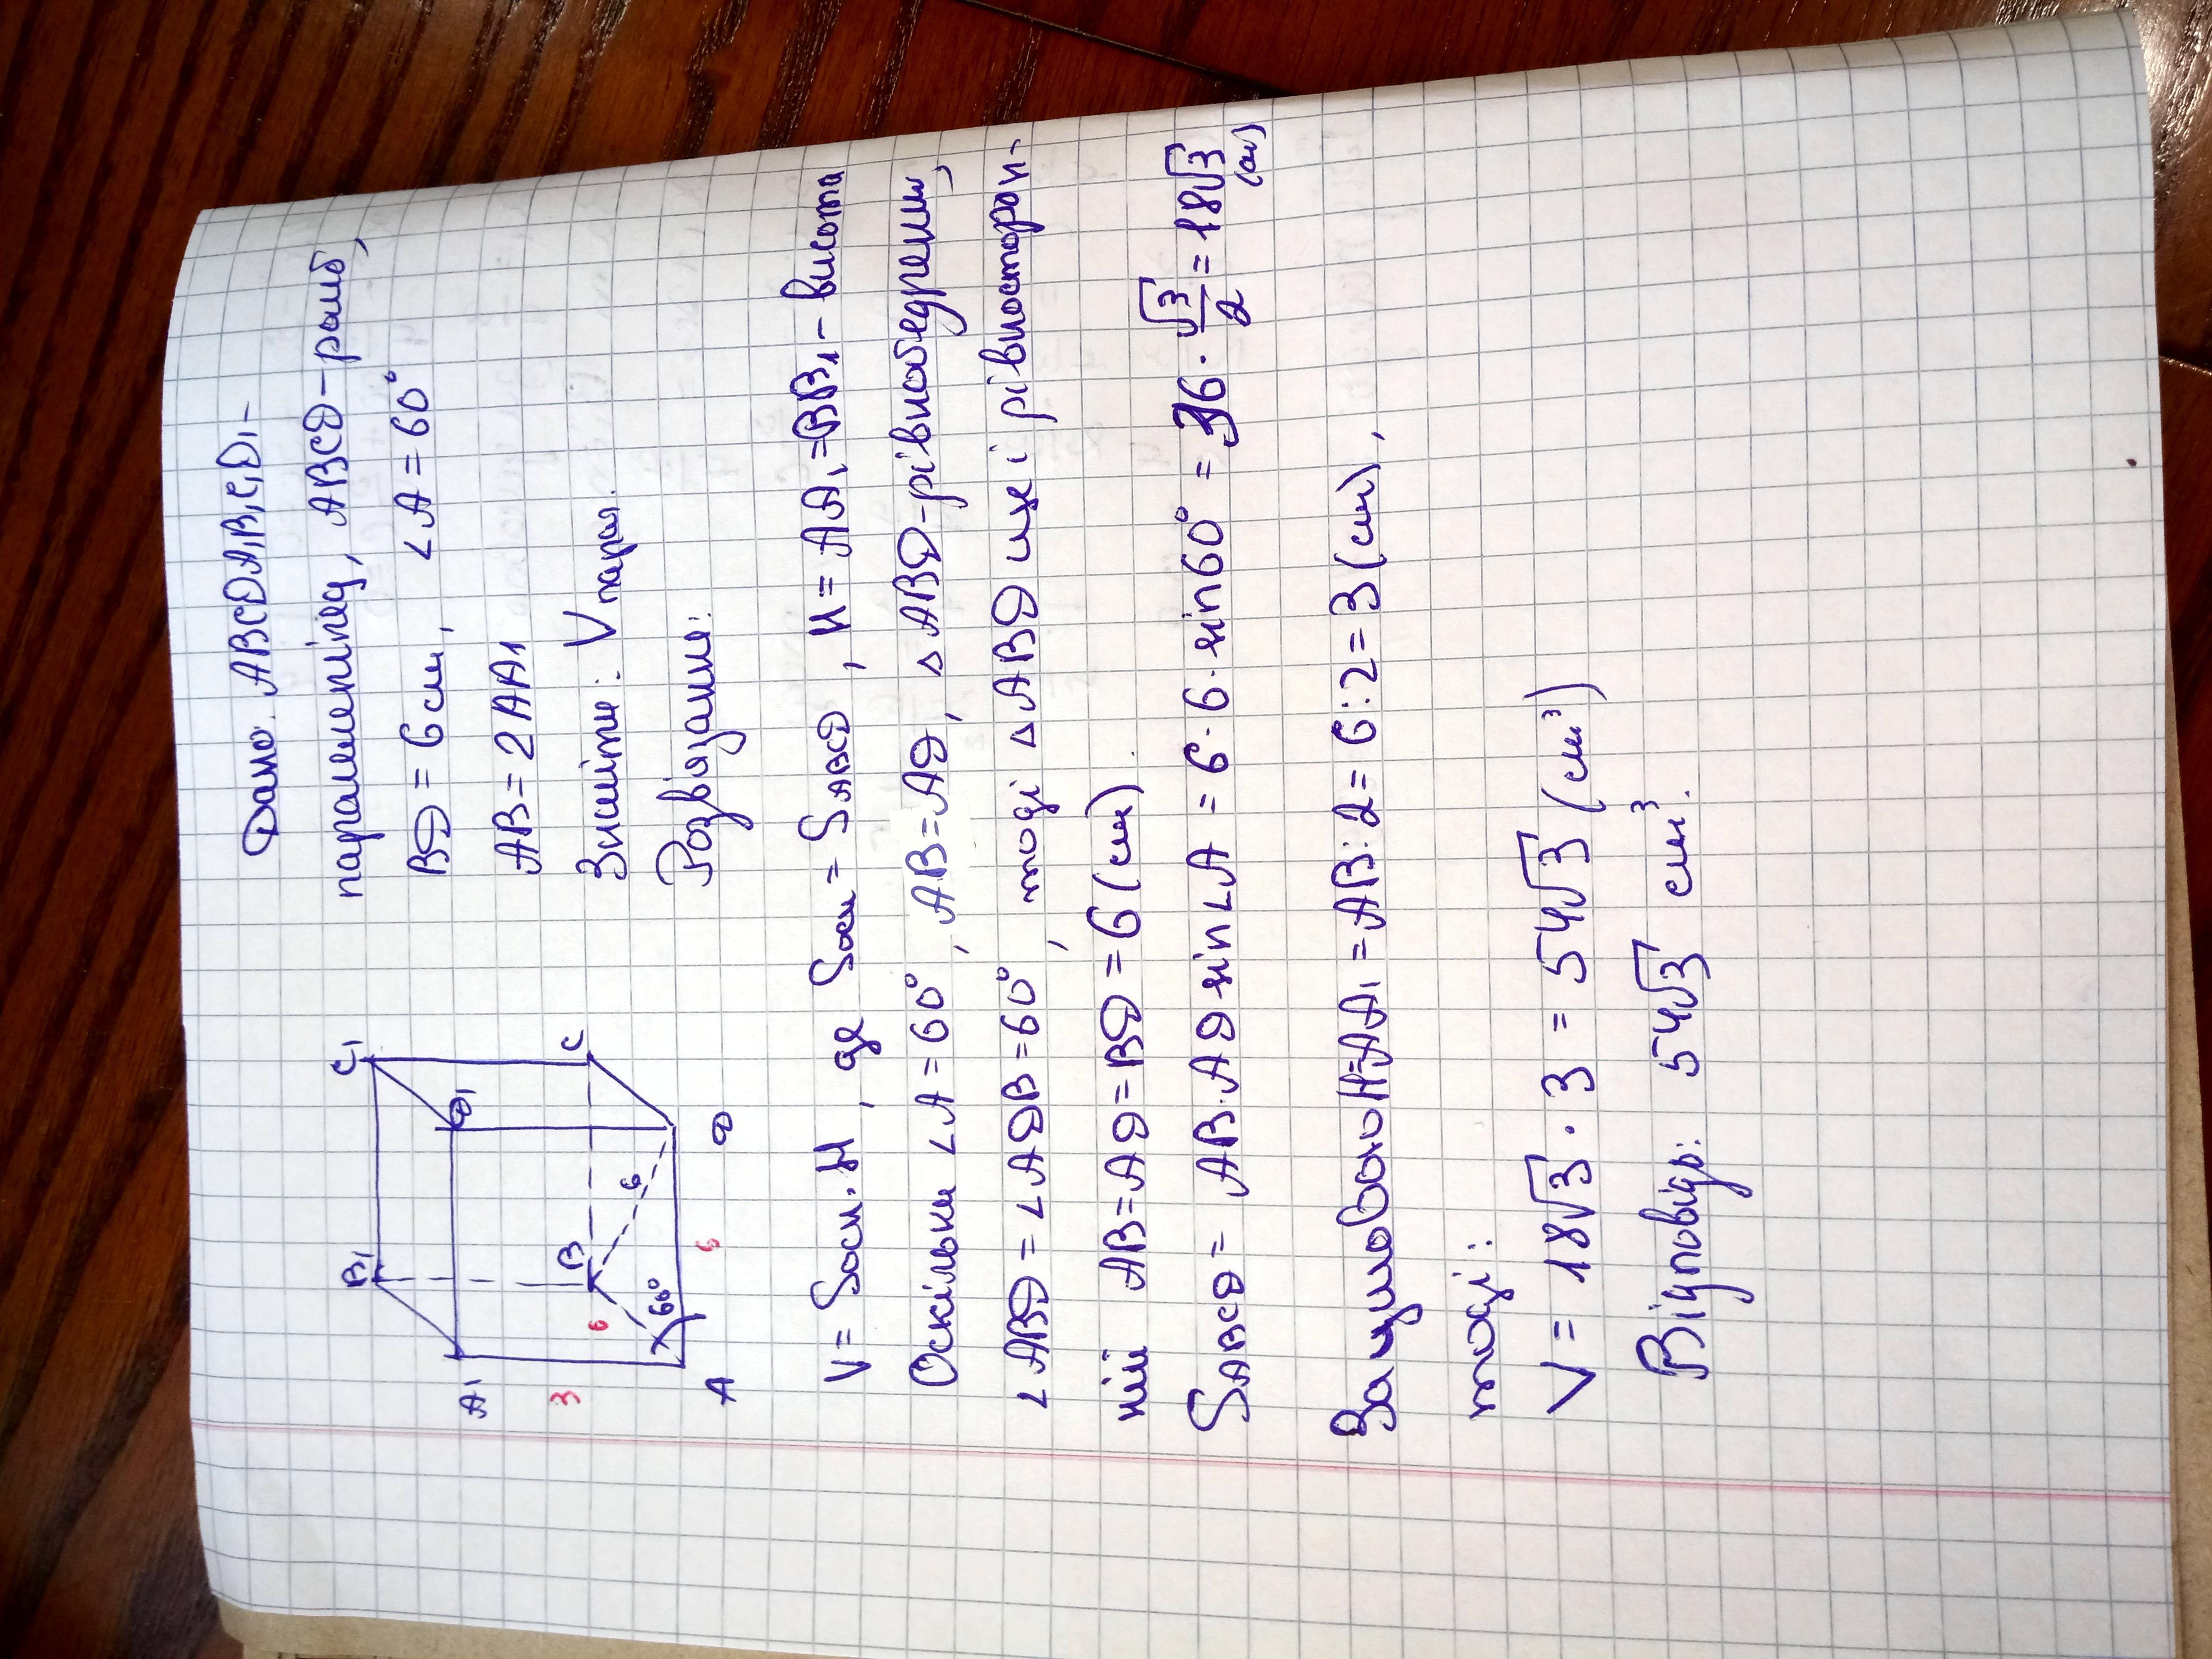 Дано: ABCDA₁B₁C₁D₁ –
паралелепіпед, ABCD – ромб,
BD = 6 см, ∠A = 60°
AB = 2AA₁
Знайти: V парал.
Розвʼязання:
B₁
C₁
A₁
D₁
3
6
B
C
6
60°
6
A
D
V = Sосн. H, де Sосн = SABCD, H = AA₁ = BB₁ – висота
Оскільки ∠A = 60°, AB = AD, △ABD – рівнобедрений,
∠ABD = ∠ADB = 60°, тоді △ABD ще і рівносторон-
ній AB = AD = BD = 6 (см).
SABCD = AB · AD sin∠A = 6 · 6 · sin60° = 36 · √3/2 = 18√3 (см)
За умовою H = AA₁ = AB : 2 = 6 : 2 = 3 (см),
тоді:
V = 18√3 · 3 = 54√3 (см³)
Відповідь: 54√3 см³.